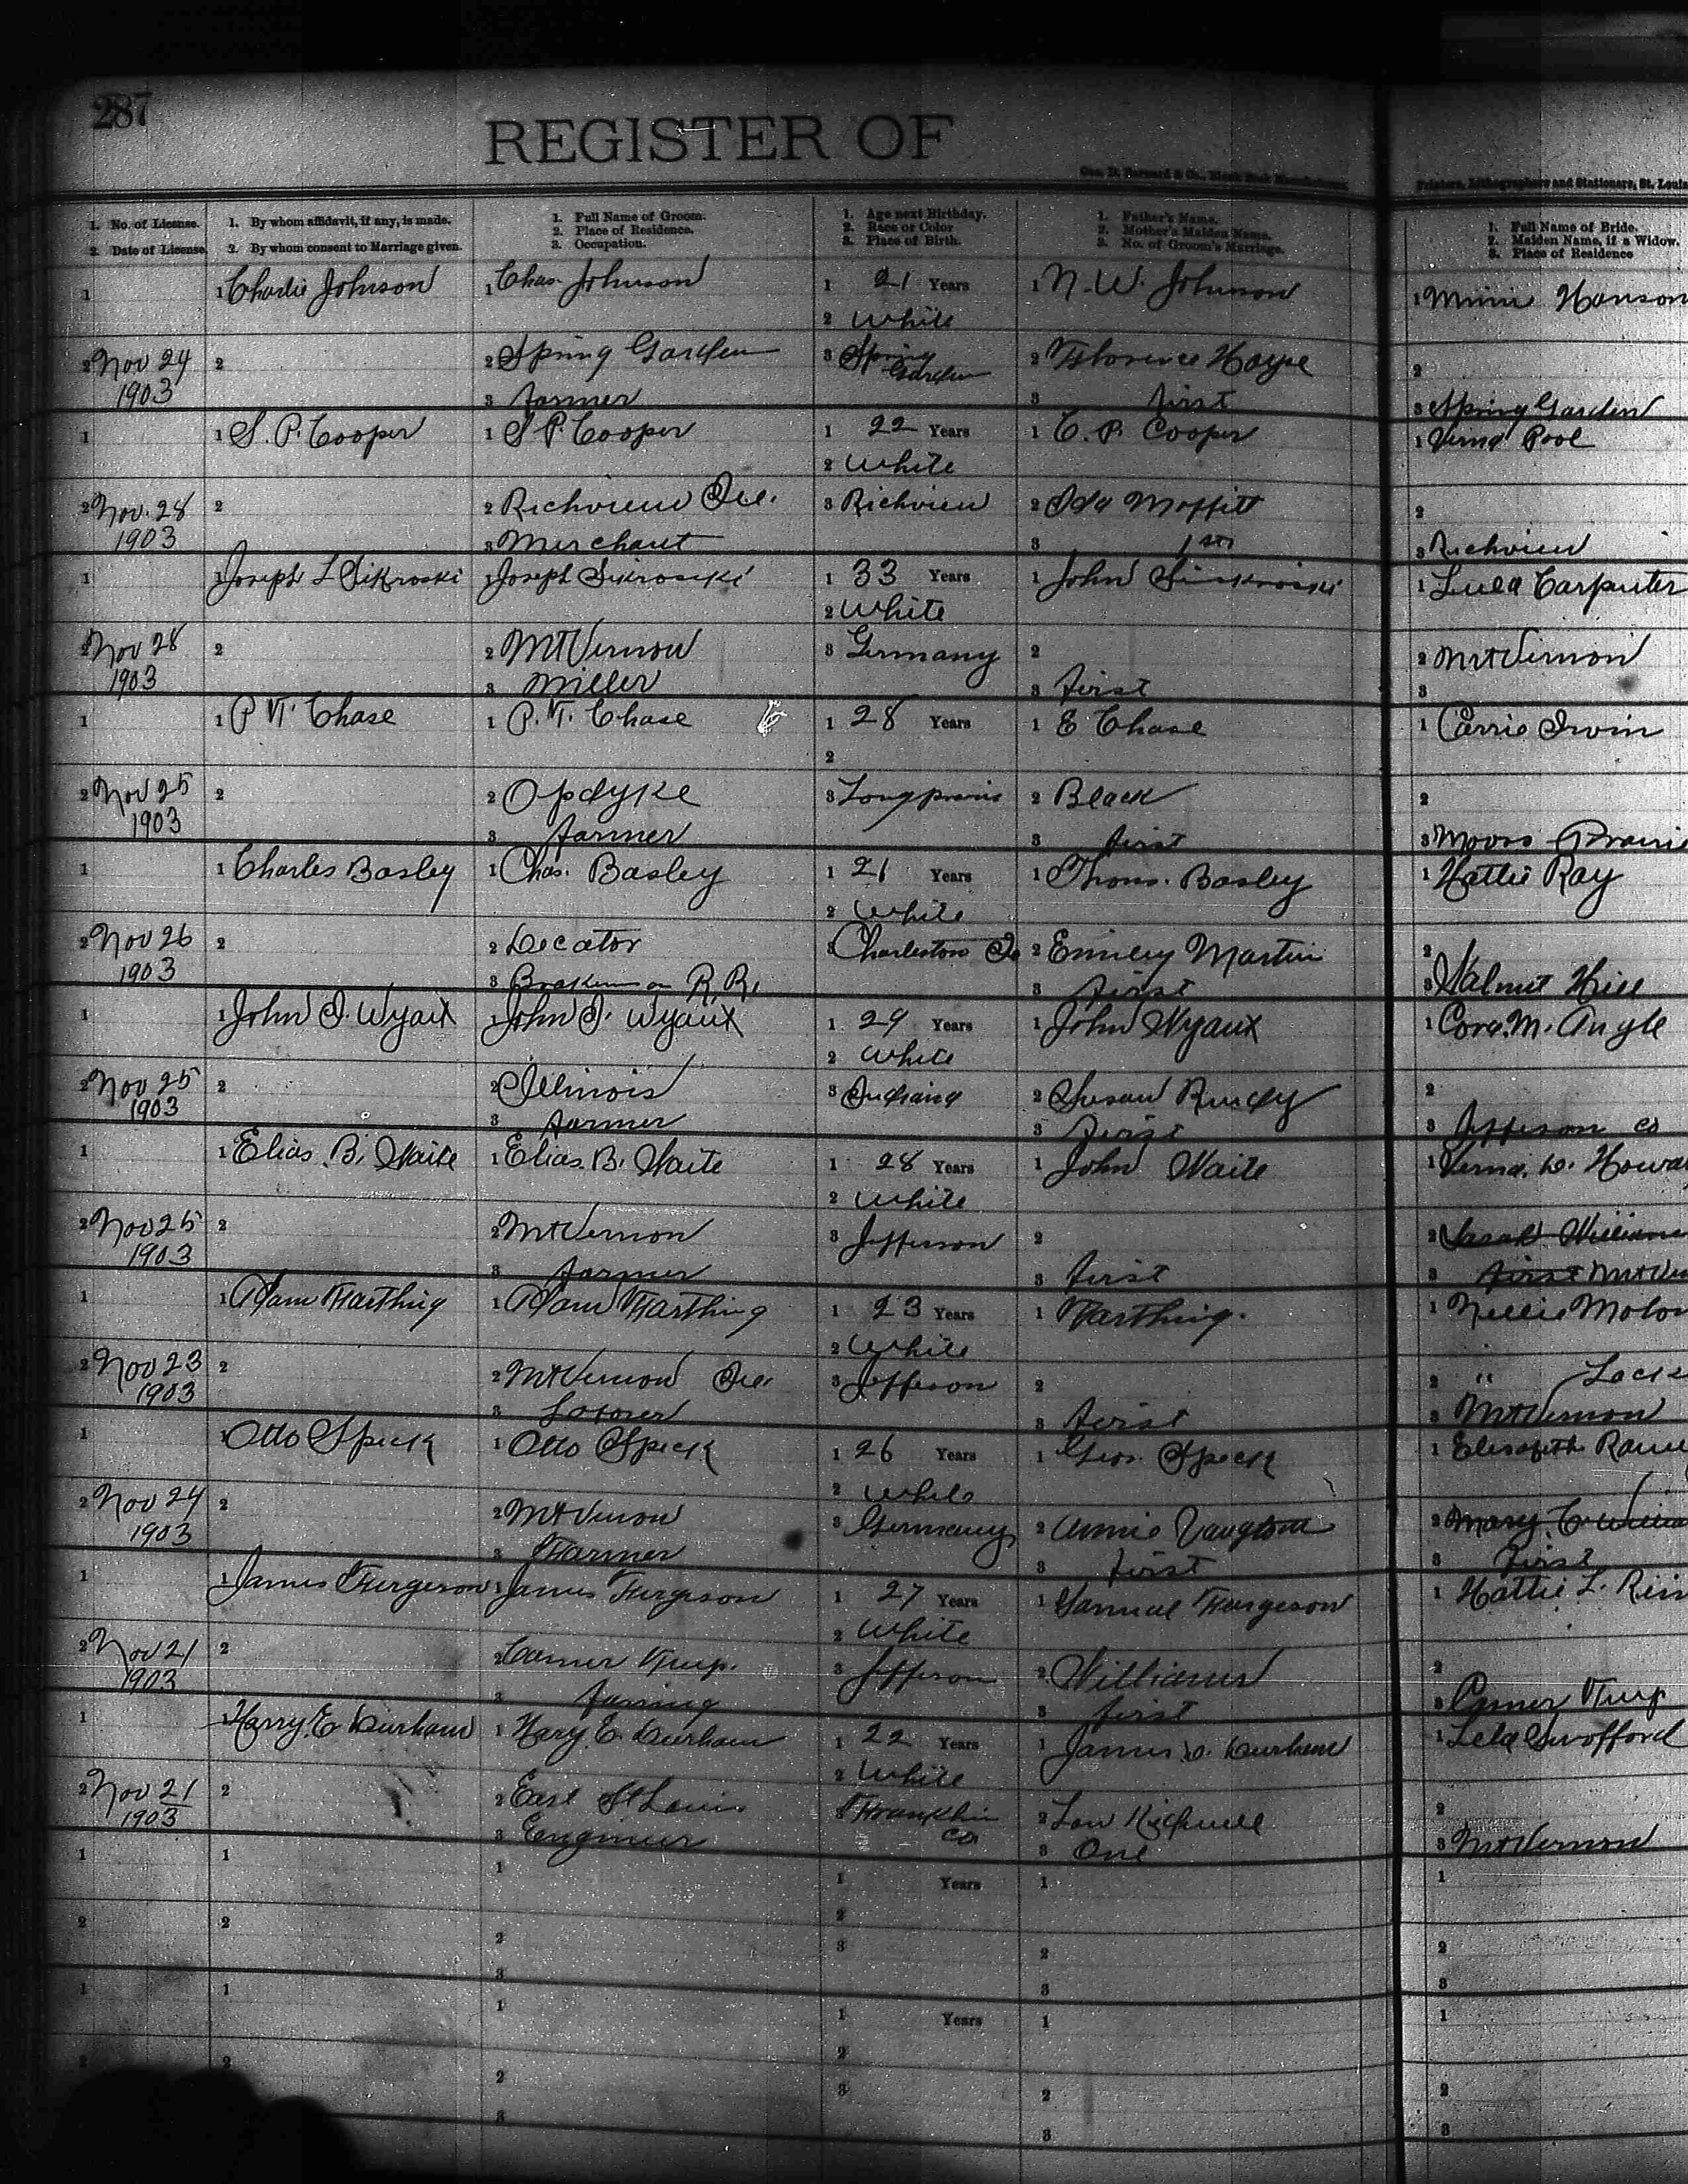 287
REGISTER OF
Geo. D. Barnard & Co., Blank Book Manufacturers,
Printers, Lithographers and Stationers, St. Louis
1. No. of License.
2. Date of License.
1. By whom affidavit, if any, is made.
2. By whom consent to Marriage given.
1. Full Name of Groom.
2. Place of Residence.
3. Occupation.
1. Age next Birthday.
2. Race or Color
3. Place of Birth.
1. Father's Name.
2. Mother's Maiden Name.
3. No. of Groom's Marriage.
1. Full Name of Bride.
2. Maiden Name, if a Widow.
3. Place of Residence
1 1 Charlie Johnson 1 Chas. Johnson 1 21 Years 1 N. W. Johnson 1 Mimi Hanson
2 White
2 Nov 24 1903 2 2 Spring Garden 3 Spring Garden 2 Florence Hayse 2
3 farmer 3 first 3 Spring Garden
1 1 S. P. Cooper 1 S P. Cooper 1 22 Years 1 C. P. Cooper 1 Verna Pool
2 White
2 Nov. 28 1903 2 2 Richview Ill. 3 Richview 2 Ida Moffitt 2
3 Merchant 3 1st 3 Richview
1 1 Joseph L Sikroski 1 Joseph Sikroseki 1 33 Years 1 John 1 Lula Carpenter
2 White
2 Nov 28 1903 2 2 Mt Vernon 3 Germany 2 2 Mt Vernon
3 Miller 3 first 3
1 1 P T. Chase 1 P. T. Chase 1 28 Years 1 E Chase 1 Carrie Irvin
2
2 Nov 25 1903 2 2 Opdyke 3 Longprairie 2 Black 2
3 farmer 3 first 3 Moors Prairie
1 1 Charles Basley 1 Chas. Basley 1 21 Years 1 Thos. Basley 1 Hattie Ray
2 White
2 Nov 26 1903 2 2 Decator 3 Charleston 2 Emiley Martin 2
3 Brakeman on R. R. 3 first 3 Walnut Hill
1 1 John I. Wyaux 1 John I. Wyaux 1 29 Years 1 John Wyaux 1 Cora. M. Angle
2 White
2 Nov 25 1903 2 2 Illinois 3 Indiana 2 Susan Rudy 2
3 farmer 3 first 3 Jefferson Co
1 1 Elias. B. Waite 1 Elias. B. Waite 1 28 Years 1 John Waite 1 Verna. D. Howa
2 White
2 Nov 25 1903 2 2 Mt Vernon 3 Jefferson 2 2 Sarah Williams
3 farmer 3 first 3 first Mt Ve
1 1 Adam Farthing 1 Adam Farthing 1 23 Years 1 Farthing. 1 Nellie Molon
2 White
2 Nov 23 1903 2 2 Mt Vernon Ill. 3 Jefferson 2 2 " Lack
3 Laborer 3 first 3 Mt Vernon
1 1 Otto Speck 1 Otto Speck 1 26 Years 1 Geo. Speck 1 Elisabeth
2 White
2 Nov 24 1903 2 2 Mt Vernon 3 Germany 2 Annie 2 Mary. C. Willia
3 Farmer 3 first 3 first
1 1 James Furgerson 1 James Furgeson 1 27 Years 1 Samuel Furgeson 1 Hattie L.
2 White
2 Nov 21 1903 2 2 3 Jefferson 2 Williams 2
3 faming 3 first 3
1 1 Harry. E Durham 1 Hary. E. Durham 1 22 Years 1 James D. Durham 1 Lela Swofford
2 White
2 Nov 21 1903 2 2 East St Louis 3 Franklin Co 2 Lou 2
3 Engineer 3 One 3 Mt Vernon
1 1 1 1 Years 1 1
2 2 2 2
3 3 2 2
3 3
1 1 1 1 Years 1 1
2 2 2 2
3 3 2 2
3 3